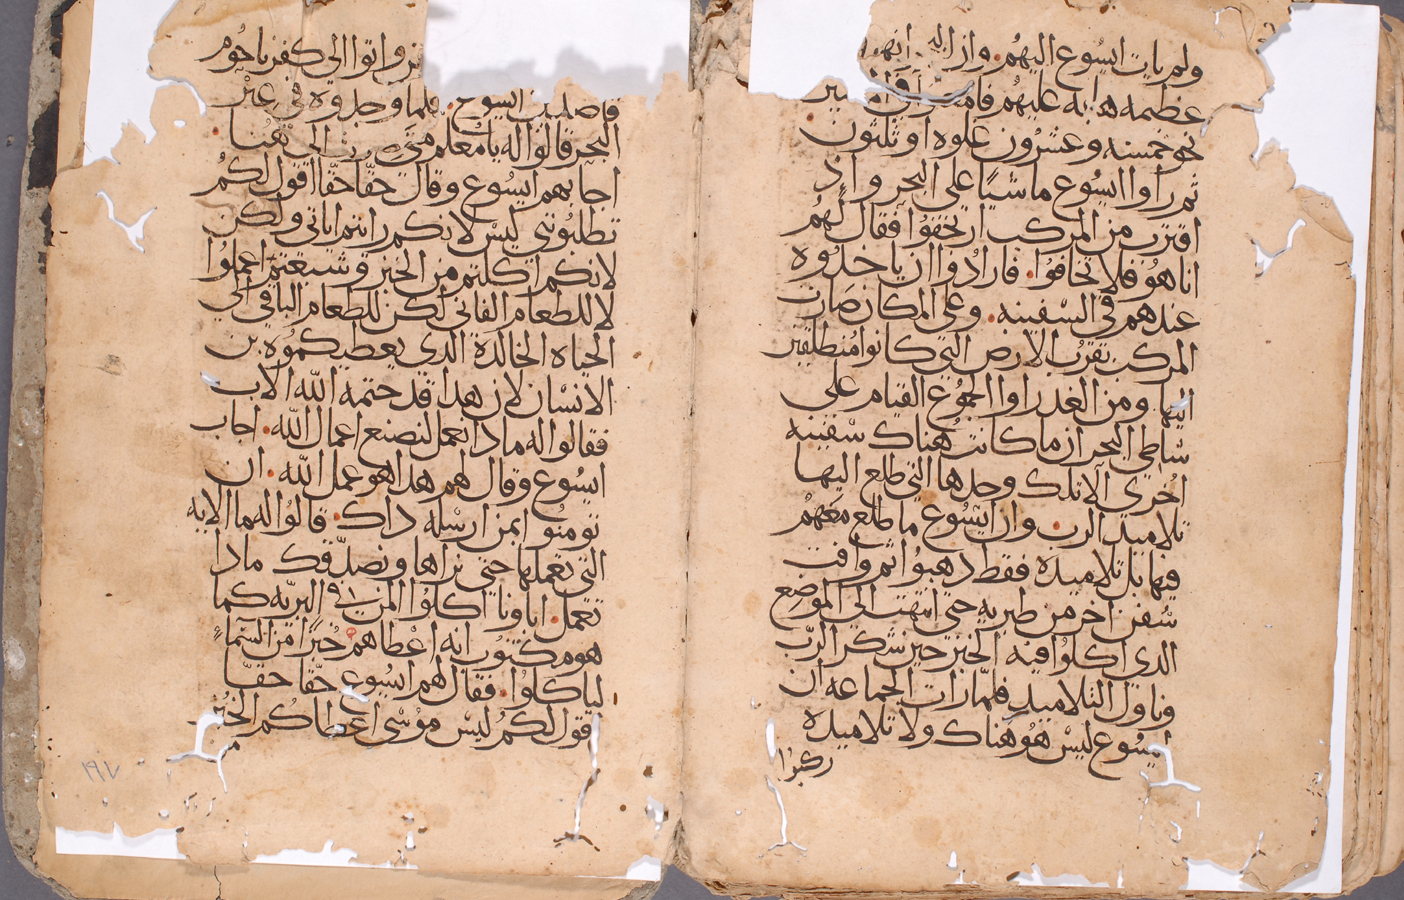 ولم يات ايسوع اليهم. وان
عظمه هابه عليهم
نحو خمسه وعشرون غلوه او ثلثون
ثم راوا ايسوع ماشيا على البحر واذ
اقترب من المركب ان تخفوا فقال لهم
انا هو فلا تخافوا. فارادوا ان ياخدوه
عندهم في السفينه. وعلى المكان صارت
المركب بقرب الارض التي كانوا منطلقين
اليها ومن الغد راوا الجموع القيام على
شاطى البحر ان ما كانت هناك سفينه
اخرى الا تلك وحدها التي طلع اليها
تلاميد الرب وان ايسوع ما طلع معهم
فيها بل تلاميده فقط دهبوا ثم وافت
سفن اخر من طبريه حتى انتهت الى الموضع
الدى اكلوا فيه الخبز حين شكر الرب
وناول التلاميد فلما رات الجماعه ان
ايسوع ليس هو هناك ولا تلاميده
ركبوا
واتوا الى كفرناحوم
قاصدين ايسوع. فلما وجدوه في عبر
البحر قالوا له يا معلم متى صرت الى هنا.
اجابهم ايسوع وقال حقا حقا اقول لكم
تطلبونني ليس لانكم رايتم اياتي ولكن
لانكم اكلتم من الخبز وشبعتم اعملوا
لا للطعام الفاني لكن للطعام الباقي الى
الحياه الخالدة الدي يعطيكموه بن
الانسان لان هدا قد ختمه الله الاب
فقالوا له مادا نعمل لنصنع اعمال الله. اجاب
ايسوع وقال لهم هدا هو عمل الله. ان
تومنوا بمن ارسله داك. قالوا له ما الايه
التي تعملها حتى نراها ونصدقك مادا
تعمل. اباونا اكلوا المن في البريه كما
هو مكتوب انه اعطاهم خبزا من السماء
لياكلوا. فقال لهم ايسوع حقا حقا
اقول لكم ليس موسى اعطاكم الخبز
١٩٧